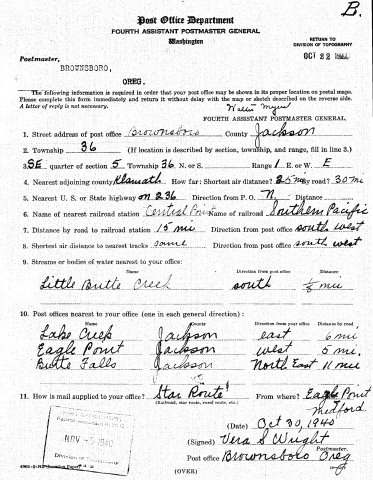 B.
Post Office Department
FOURTH ASSISTANT POSTMASTER GENERAL
Washington
RETURN TO
DIVISION OF TOPOGRAPHY
OCT 22
Postmaster,
BROWNSBORO,
OREG.
The following information is required in order that your post office may be shown in its proper location on postal maps.
Please complete this form immediately and return it without delay with the map or sketch described on the reverse side.
A letter of reply is not necessary.
FOURTH ASSISTANT POSTMASTER GENERAL.
1. Street address of post office Brownsboro County Jackson
2. Township 36 (If location is described by section, township, and range, fill in line 3.)
3. SE quarter of section 5 Township 36 N. or S. Range 1 E. or W. E
4. Nearest adjoining county Klamath How far: Shortest air distance? 25 mi By road? 30 mi
5. Nearest U. S. or State highway on 236 Direction from P. O. N. Distance
6. Name of nearest railroad station Central Point Name of railroad Southern Pacific
7. Distance by road to railroad station 15 mil Direction from post office south west
8. Shortest air distance to nearest tracks same Direction from post office south west
9. Streams or bodies of water nearest to your office:
Name Direction from post office Distance
Little Butte Creek south 1/8 mi
10. Post offices nearest to your office (one in each general direction):
Name County Direction from post office Distance by road
Lake Creek Jackson east 6 mi
Eagle Point Jackson west 5 mi.
Butte Falls Jackson North East 11 mi
11. How is mail supplied to your office? Star Route From where? Eagle Point
(Railroad, star route, rural route, etc.) Medford.
(Date) Oct 30, 1940
(Signed) Vera S Wright
Postmaster.
NOV -5 1940
Post office Brownsboro Oreg
(OVER)